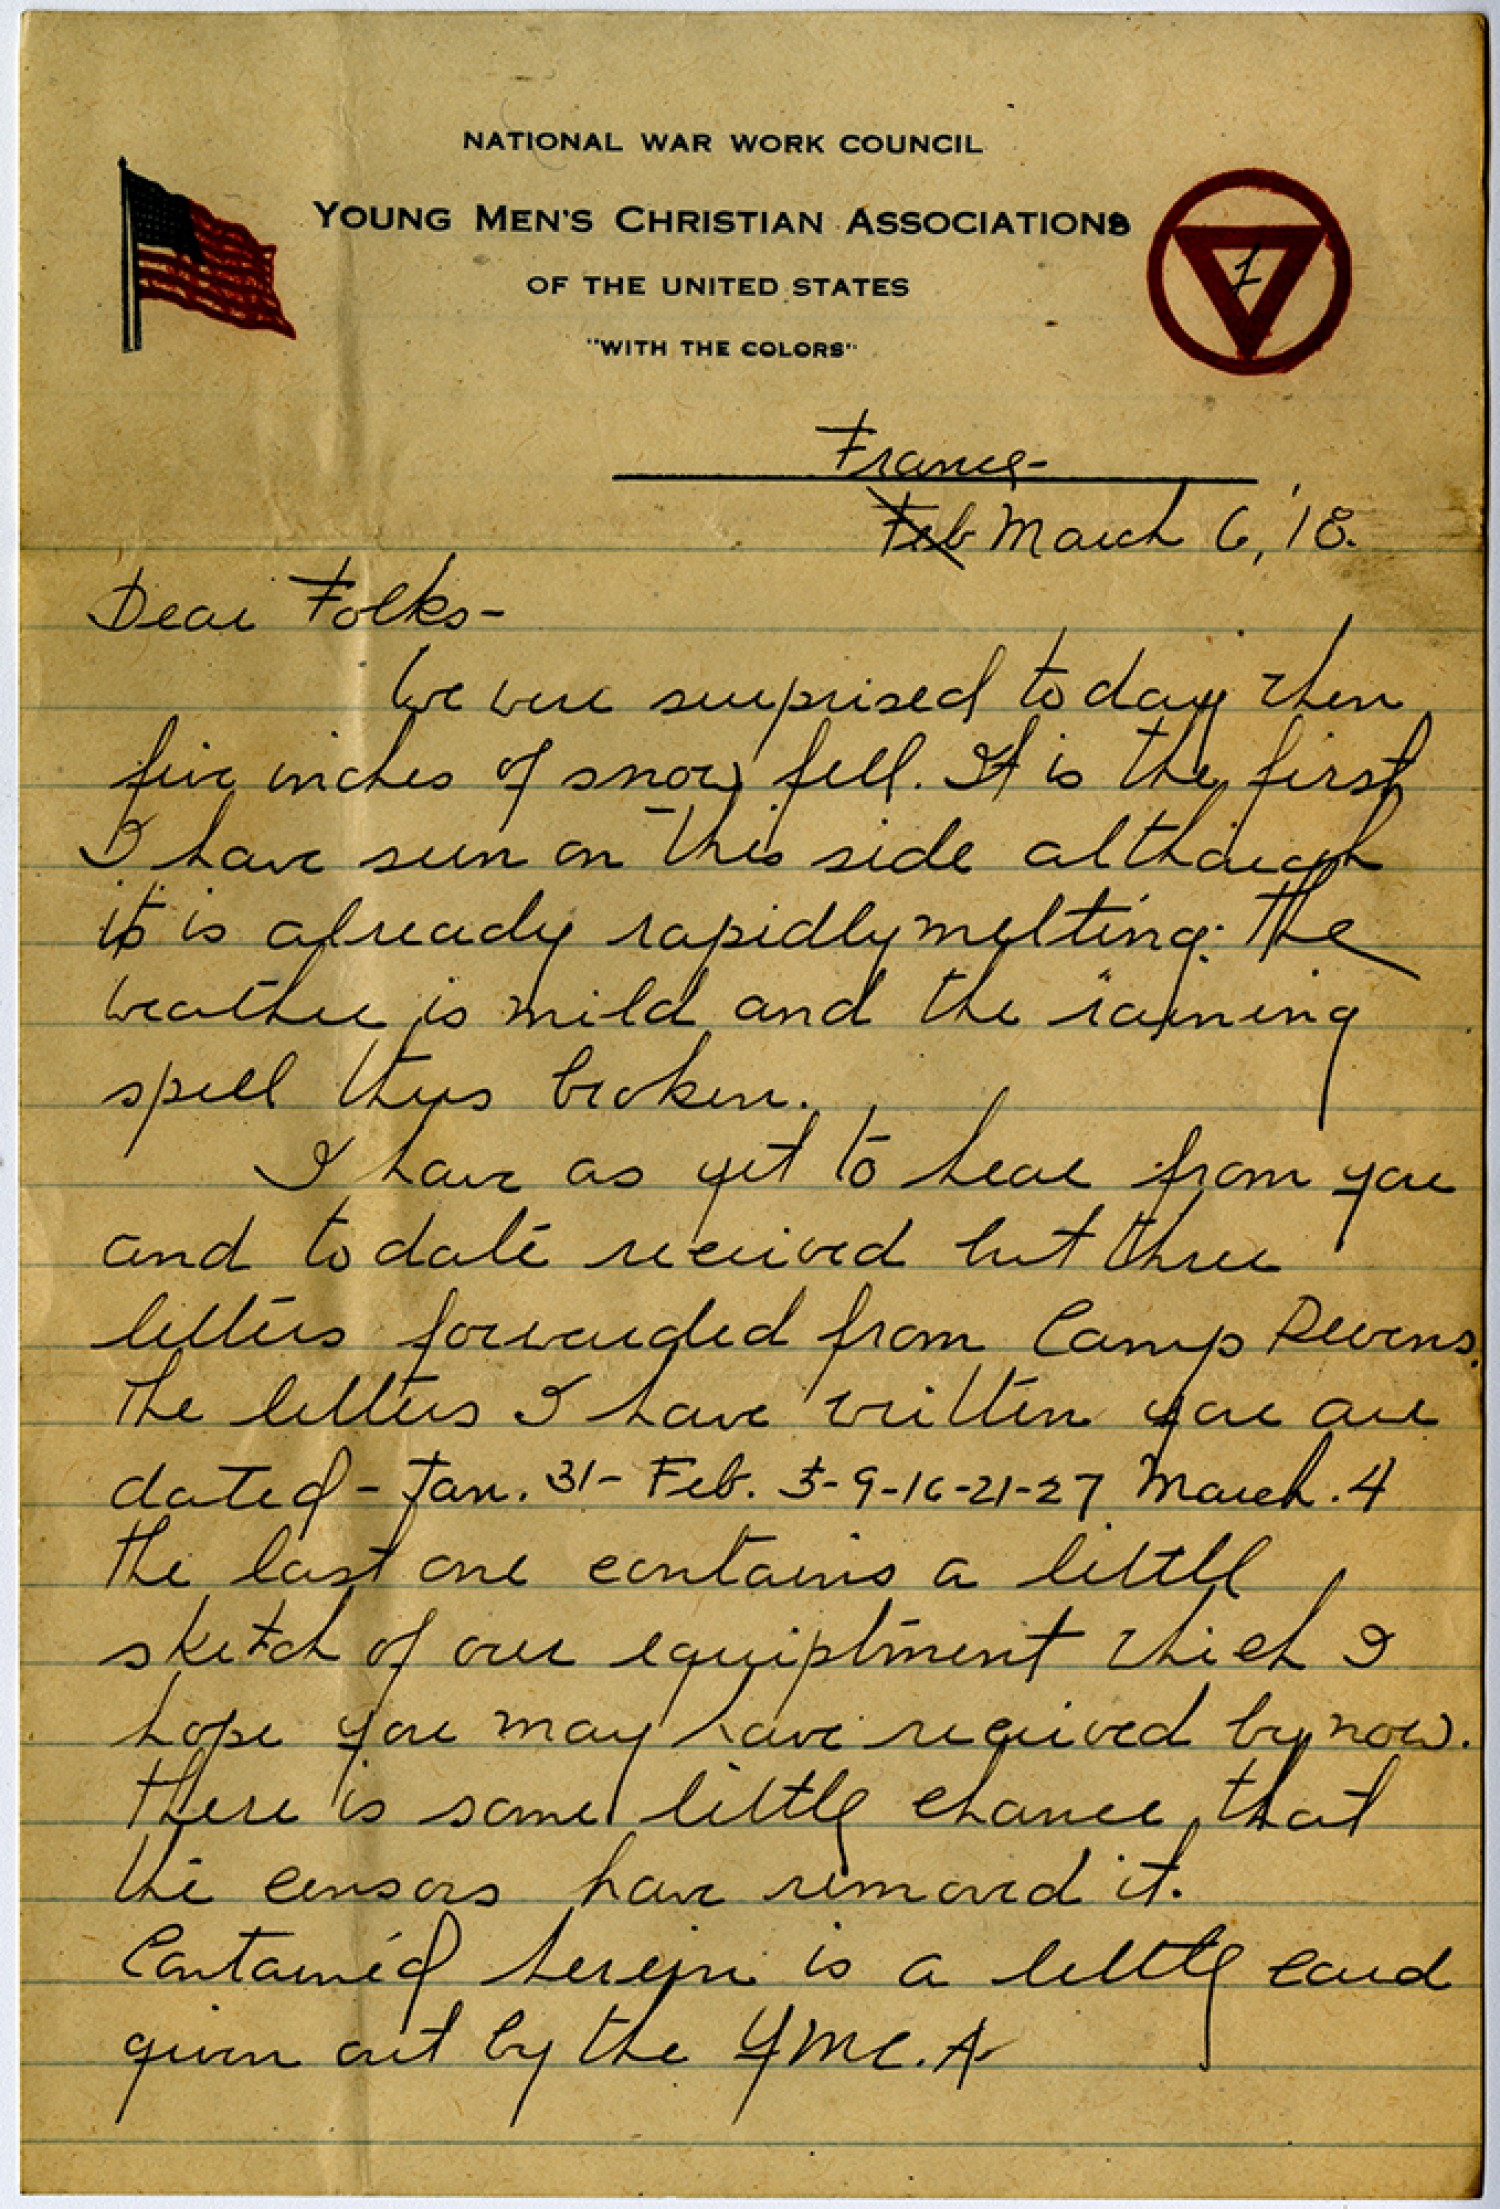 NATIONAL WAR WORK COUNCIL
YOUNG MEN'S CHRISTIAN ASSOCIATIONS
OF THE UNITED STATES
"WITH THE COLORS"
1
France-
Feb March 6, '18.
Dear Folks-
We were surprised today when
five inches of snow fell. It is the first
I have seen on this side although
it is already rapidly melting. The
weather is mild and the raining
spell thus broken.
I have as yet to hear from you
and to date received but three
letters forwarded from Camp Devens.
The letters I have written you are
dated - Jan. 31- Feb. 5-9-16-21-27 March. 4
The last one contains a little
sketch of our equiptment which I
hope you may have received by now.
There is some little chance that
the censors have removed it.
Contained herein is a little card
given out by the YMC.A